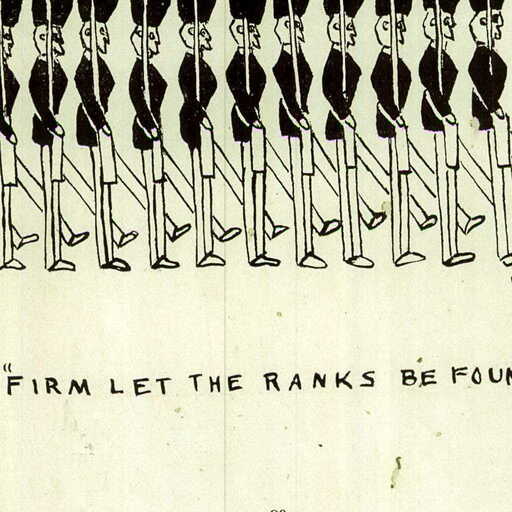 "FIRM LET THE RANKS BE FOUN